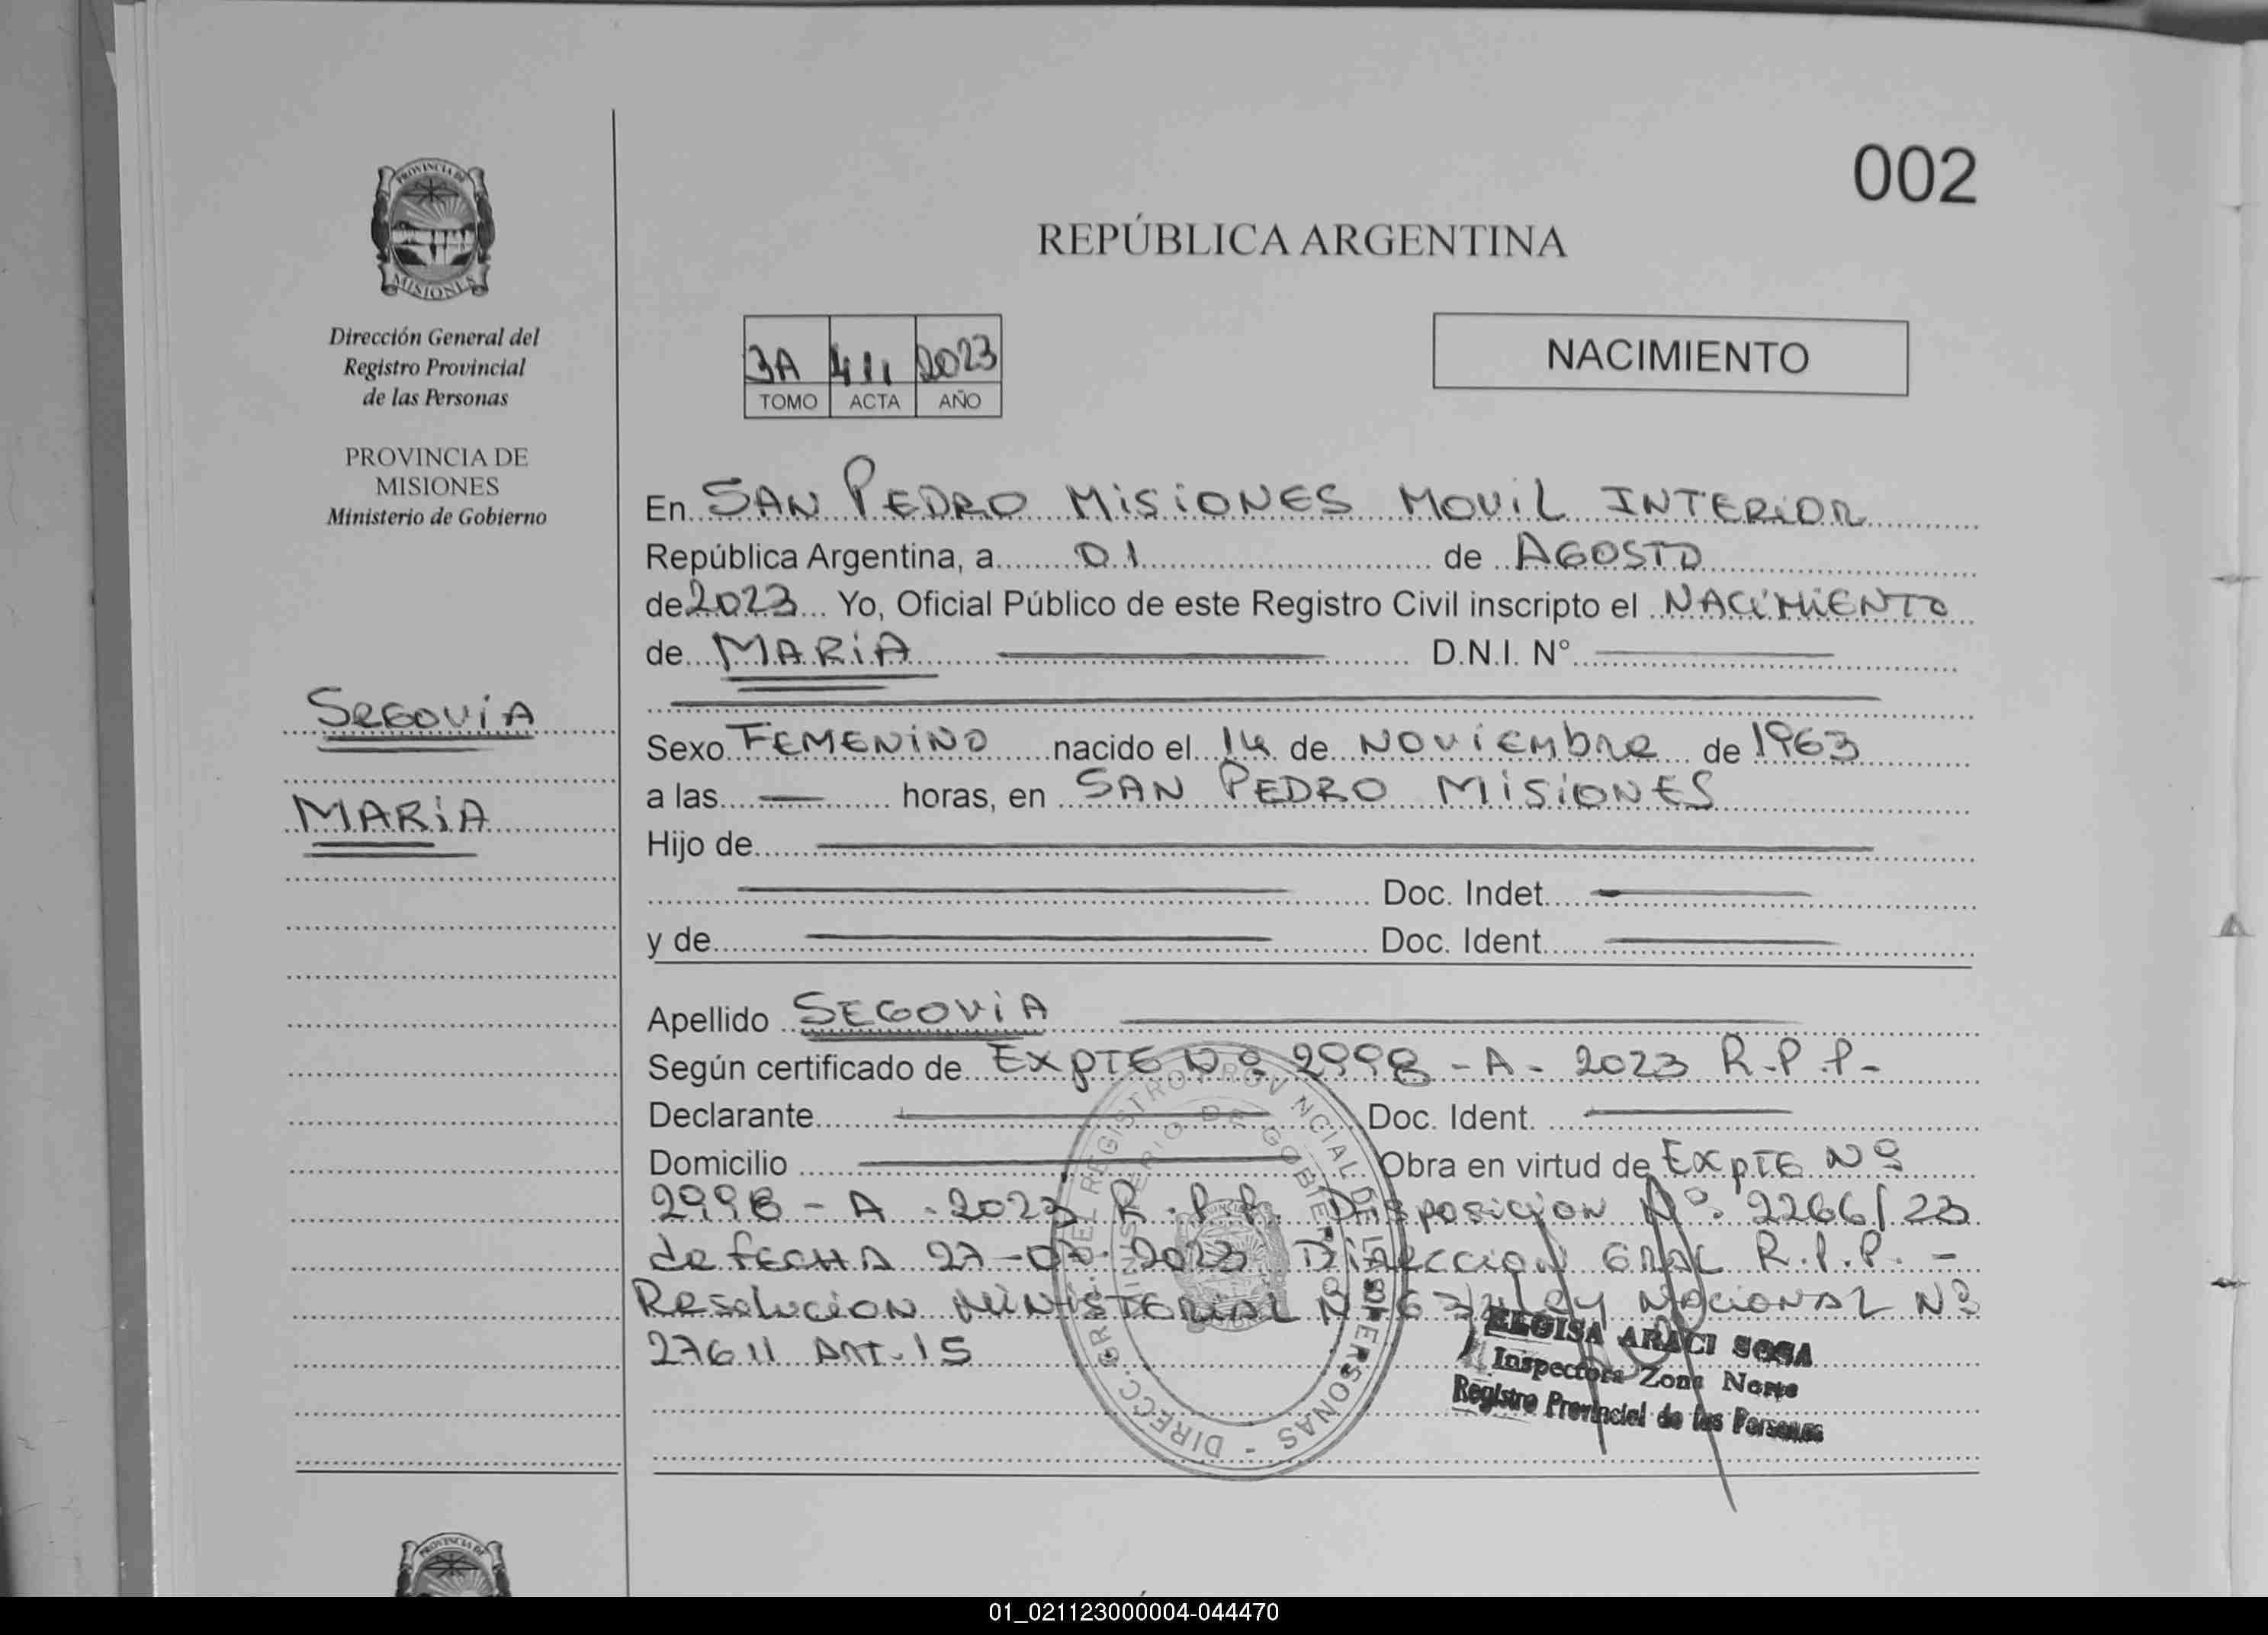 002
PROVINCIA DE
MISIONES
REPÚBLICA ARGENTINA
Dirección General del
Registro Provincial
de las Personas
PROVINCIA DE
MISIONES
Ministerio de Gobierno
3A 411 2023
TOMO ACTA AÑO
NACIMIENTO
SEGOVIA
MARIA
En SAN PEDRO MISIONES MOVIL INTERIOR
República Argentina, a 01 de AGOSTO
de 2023 Yo, Oficial Público de este Registro Civil inscripto el NACIMIENTO
de MARIA D.N.I. N°
Sexo FEMENINO nacido el 14 de NOVIEMBRE de 1963
a las horas, en SAN PEDRO MISIONES
Hijo de
Doc. Indet.
y de Doc. Ident.
Apellido SEGOVIA
Según certificado de EXPTE Nº 2998 - A - 2023 R.P.P-
Declarante Doc. Ident.
Domicilio Obra en virtud de EXPTE Nº
2998 - A - 2023 R.P.P. Disposición Nº 2266/23
de FECHA 27-07-2023 Dirección GRAL R.P.P. -
Resolución MINISTERIAL Nº LEY NACIONAL Nº
27611 ART. 15
DIRECC. GRAL. DEL REGISTRO PROVINCIAL DE LAS PERSONAS -
MINISTERIO DE GOBIERNO
ELOISA ARACI SOSA
Inspectora Zona Norte
Registro Provincial de las Personas
PROVINCIA DE
01_021123000004-044470